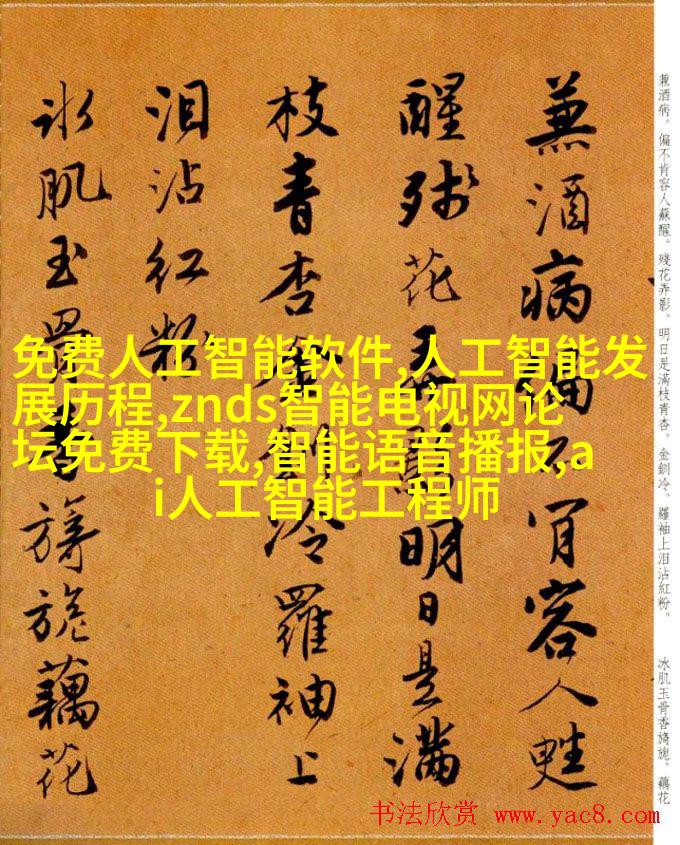 兼酒病。偏不肯容人蘇醒。殘花弄影。明日是滿枝青杏。金釧冷。羅袖上泪沾紅粉。
冰肌玉骨香旖旎。藕花
兼酒病偏不肯容人甦
醒殘花弄影明日是滿
枝青杏金釧冷羅袖上
泪沾紅粉
冰肌玉骨香旖旎藕花
免费人工智能软件,人工智能发
展历程,znds智能电视网论
坛免费下载,智能语音播报,a
i人工智能工程师
书法欣赏 www.yac8.com